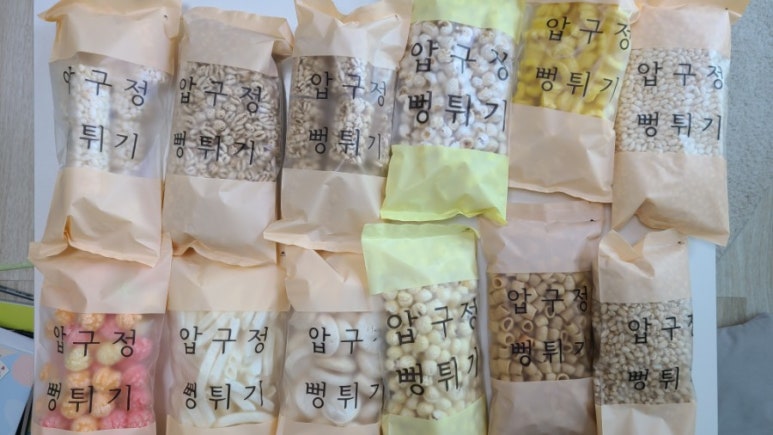 압구정
튀기
압구정
뻥튀기
압구정
뻥튀기
압구정
뻥튀기
압구정
뻥튀기
압구정
뻥튀기
압구정
뻥튀기
압구정
뻥튀기
압구
뻥튀기
압구정
뻥튀기
압구정
뻥튀기
압구정
뻥튀